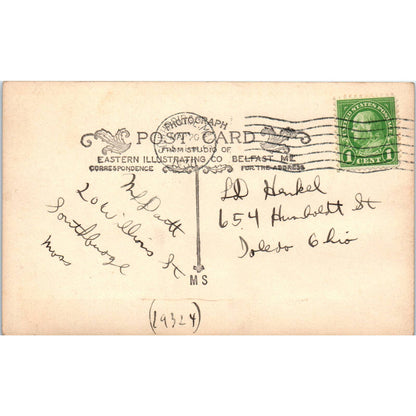 PHOTOGRAPH
POST CARD
FROM STUDIO OF
EASTERN ILLUSTRATING CO BELFAST ME
CORRESPONDENCE FOR THE ADDRESS
UNITED STATES POSTAGE
1 CENT 1
20 Williams St
Southbridge
Mass
LD Henkel
654 Humboldt St
Toledo Ohio
MS
(19324)